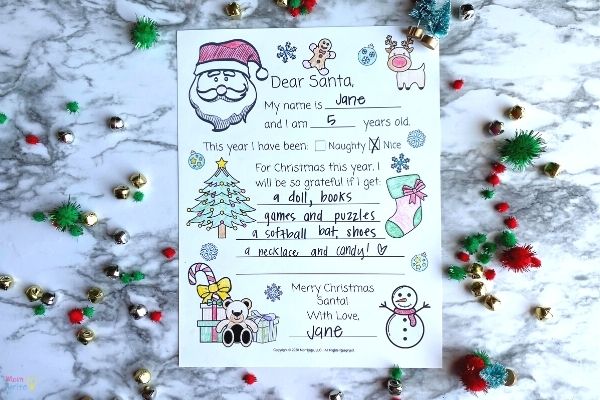 Dear Santa,
My name is Jane
and I am 5 years old.
This year I have been: Naughty X Nice
For Christmas this year, I
will be so grateful if I get:
a doll, books
games and puzzles
a softball bat, shoes
a necklace and candy!
Merry Christmas
Santa!
With Love,
Jane